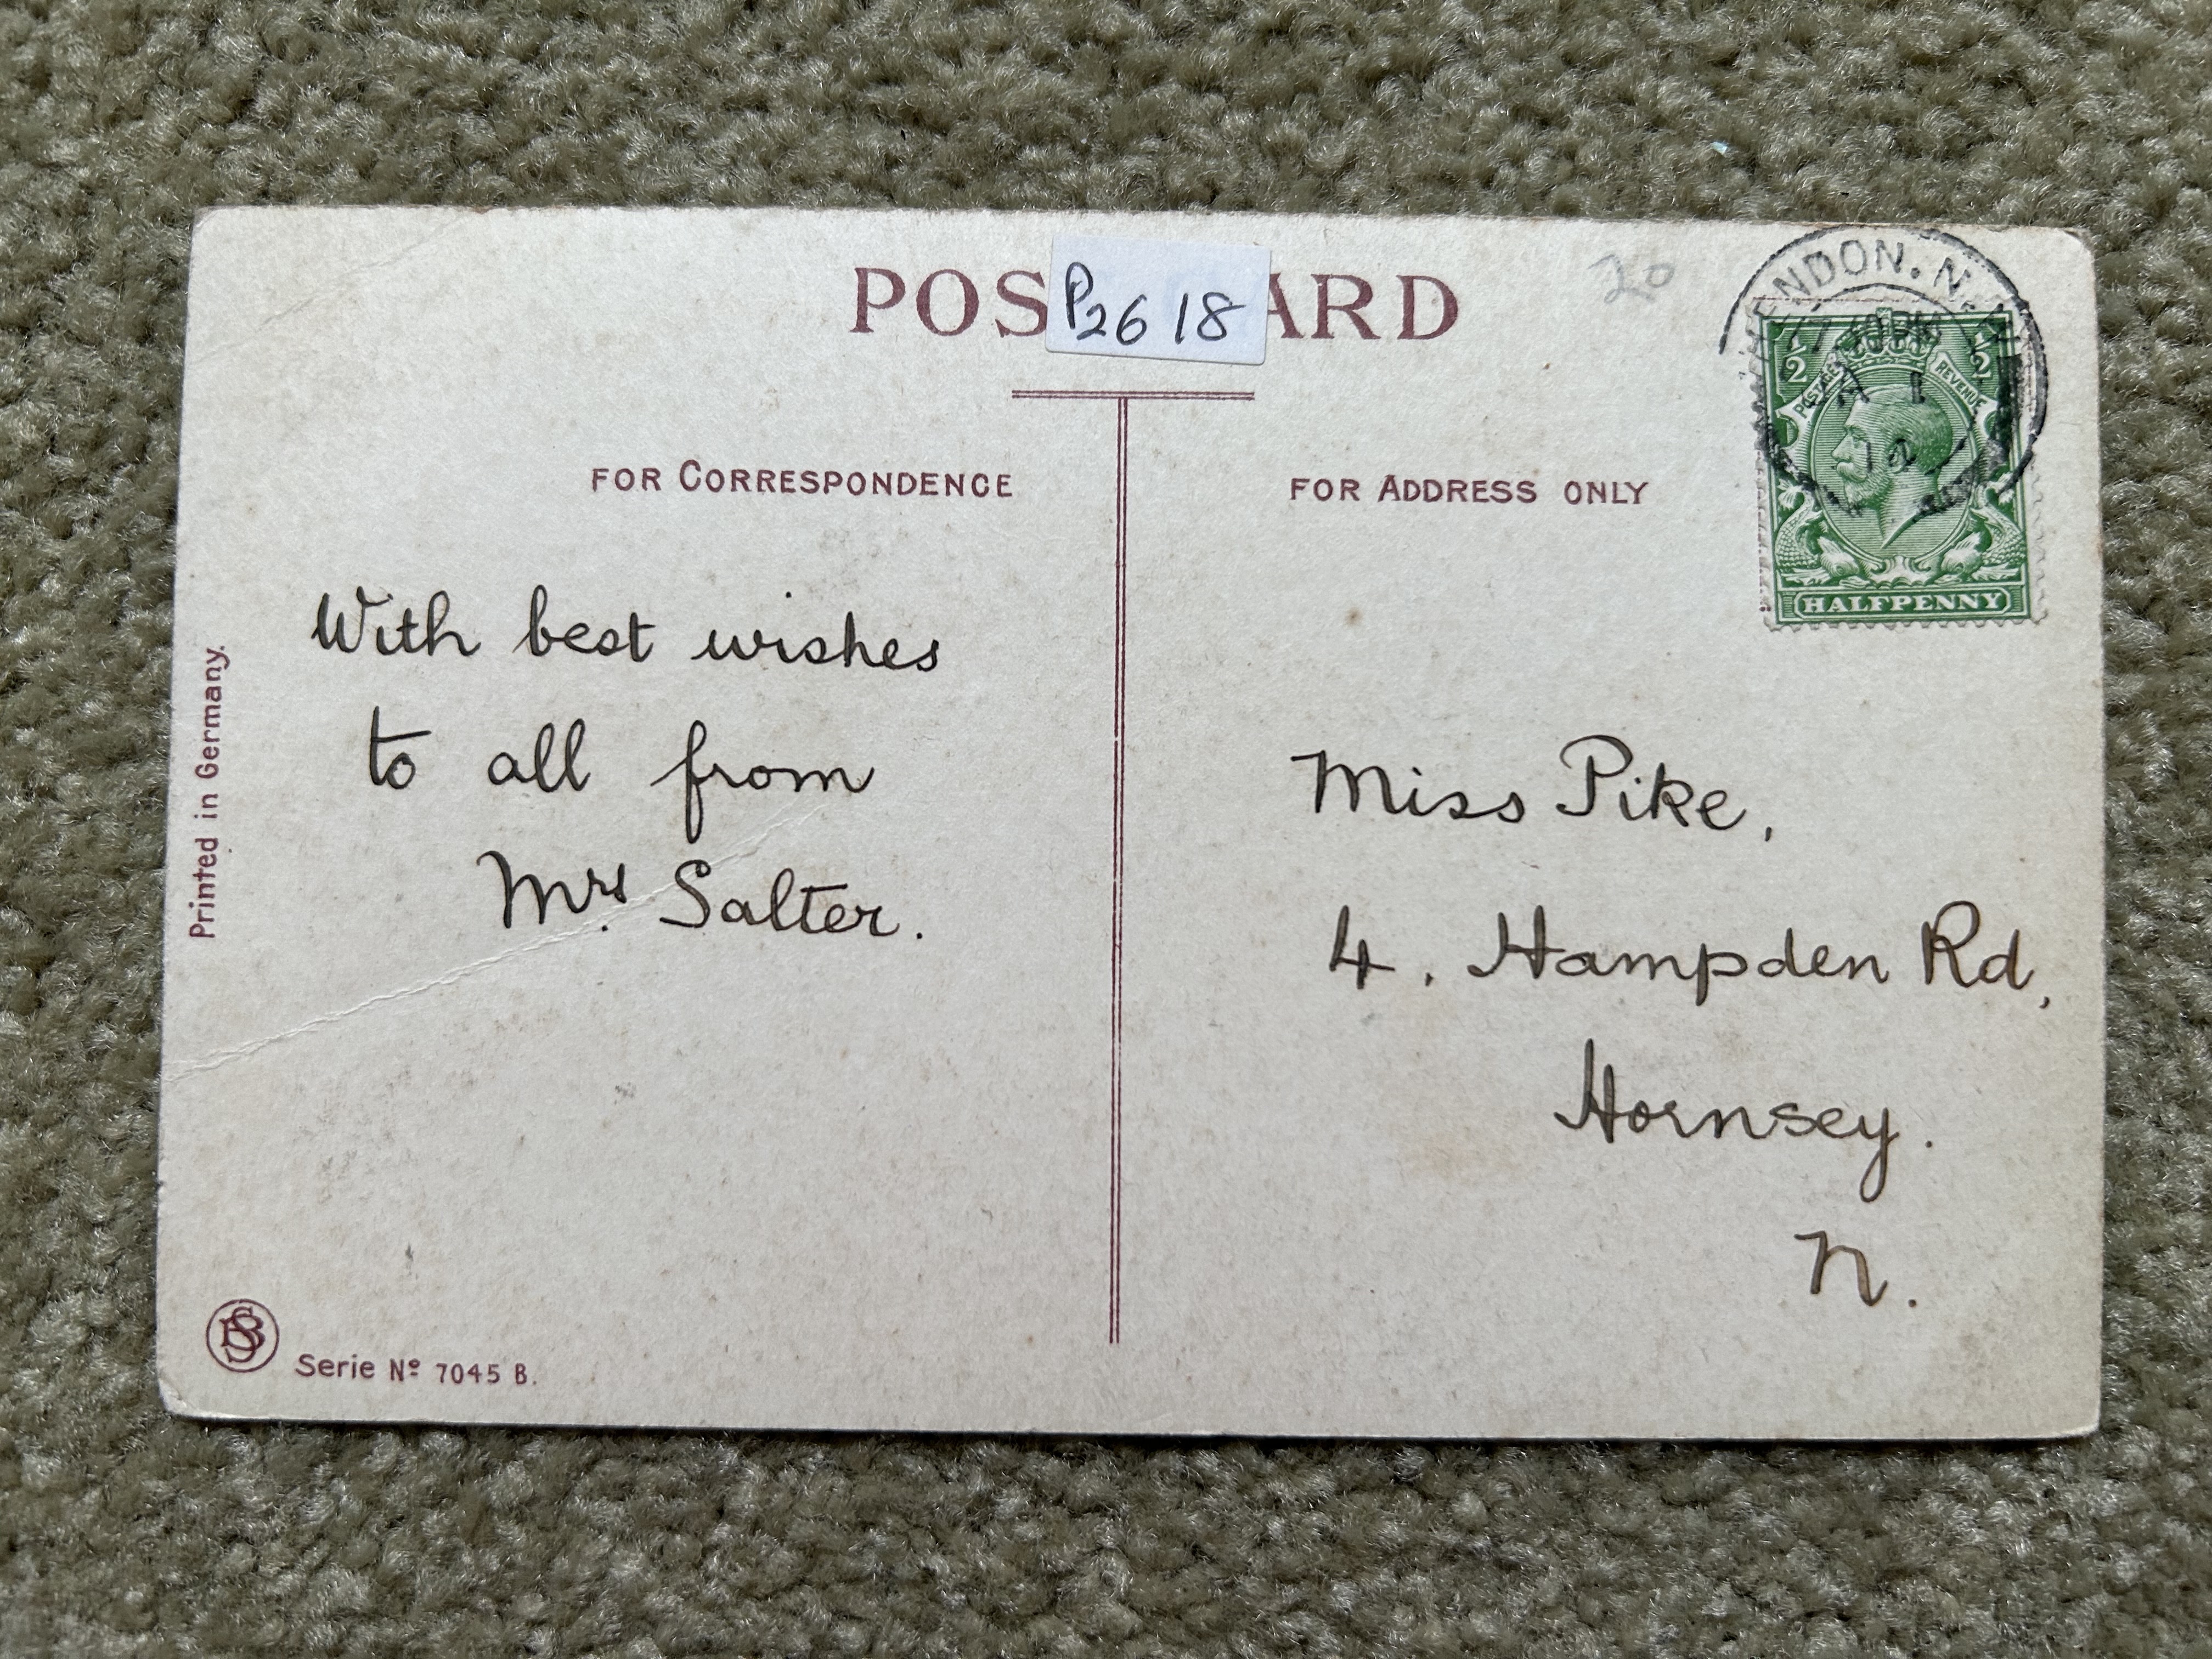 POS ARD
P2618
20
FOR CORRESPONDENCE
FOR ADDRESS ONLY
NDON. N.
1/2 1/2
POSTAGE REVENUE
HALFPENNY
With best wishes
to all from
Mrs Salter.
Miss Pike,
4. Hampden Rd,
Hornsey.
N.
Printed in Germany.
Serie No 7045 B.